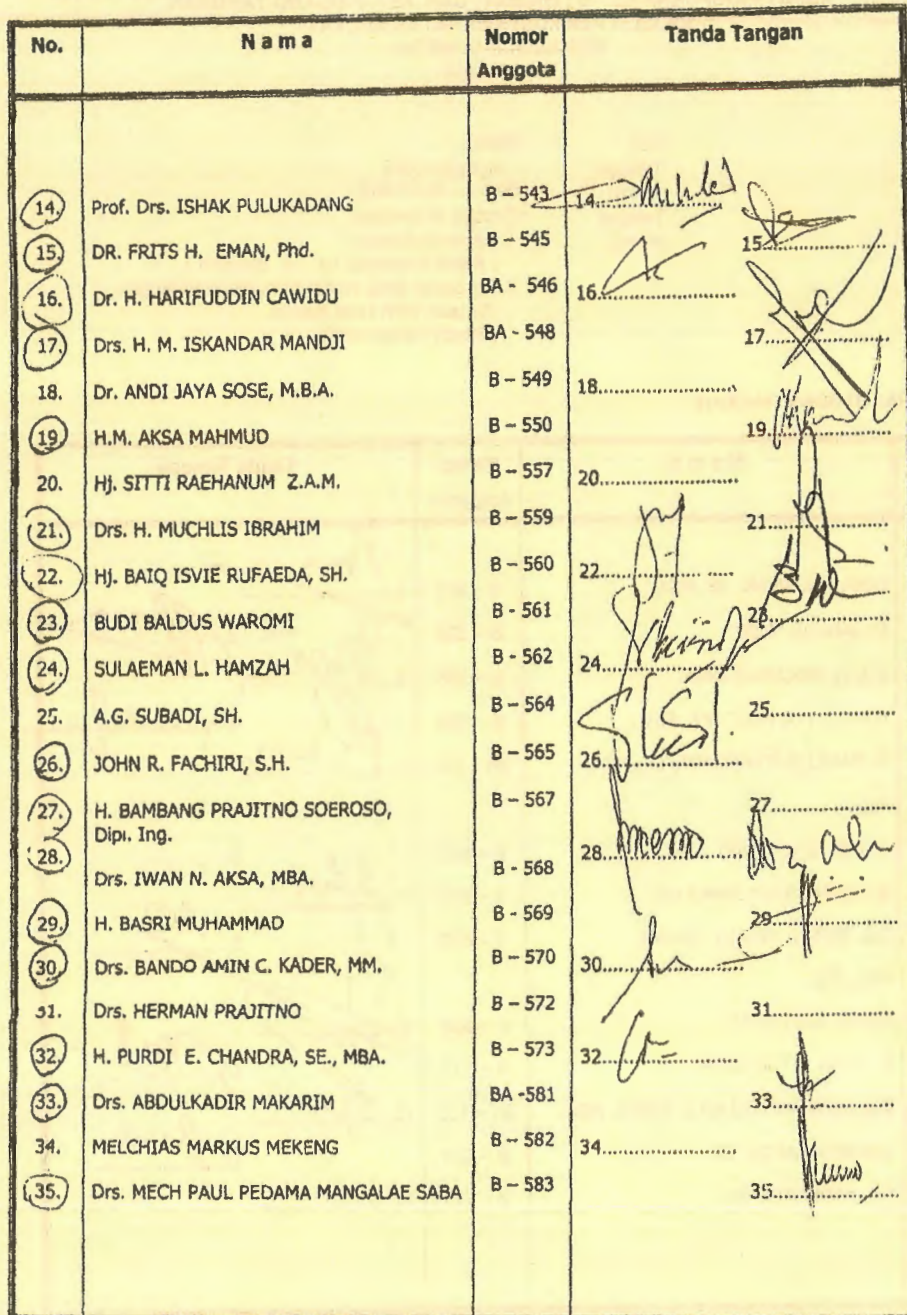 No. Nama Nomor Anggota Tanda Tangan
14. Prof. Drs. ISHAK PULUKADANG B – 543 14
15. DR. FRITS H. EMAN, Phd. B – 545 15
16. Dr. H. HARIFUDDIN CAWIDU BA - 546 16
17. Drs. H. M. ISKANDAR MANDJI BA - 548 17
18. Dr. ANDI JAYA SOSE, M.B.A. B – 549 18
19 H.M. AKSA MAHMUD B – 550 19
20. Hj. SITTI RAEHANUM Z.A.M. B – 557 20
21. Drs. H. MUCHLIS IBRAHIM B – 559 21
22. Hj. BAIQ ISVIE RUFAEDA, SH. B – 560 22
23. BUDI BALDUS WAROMI B - 561 23
24. SULAEMAN L. HAMZAH B - 562 24
25. A.G. SUBADI, SH. B – 564 25
26. JOHN R. FACHIRI, S.H. B – 565 26
27. H. BAMBANG PRAJITNO SOEROSO, B – 567 27
Dipl. Ing.
28. Drs. IWAN N. AKSA, MBA. B - 568 28
29. H. BASRI MUHAMMAD B - 569 29
30. Drs. BANDO AMIN C. KADER, MM. B – 570 30
31. Drs. HERMAN PRAJITNO B – 572 31
32. H. PURDI E. CHANDRA, SE., MBA. B – 573 32
33. Drs. ABDULKADIR MAKARIM BA -581 33
34. MELCHIAS MARKUS MEKENG B – 582 34
35. Drs. MECH PAUL PEDAMA MANGALAE SABA B – 583 35